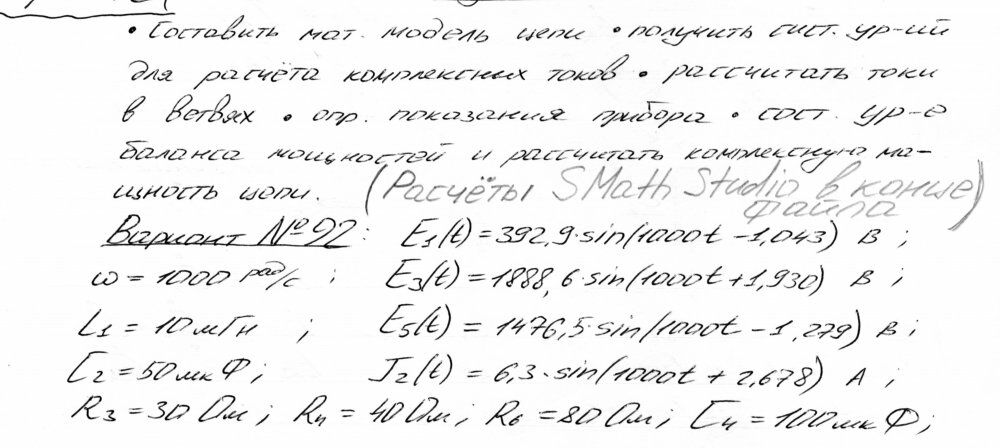 • Составить мат. модель цепи • получить сист. ур-ий
для расчёта комплексных токов • рассчитать токи
в ветвях • опр. показания прибора • сост. ур-е
баланса мощностей и рассчитать комплексную мо-
щность цепи. (Расчёты SMath Studio в конце файла)
Вариант №92: E1(t)=392,9·sin(1000t-1,043) В ;
ω=1000 рад/с ; E3(t)=1888,6·sin(1000t+1,930) В ;
L1=10мГн ; E5(t)=1476,5·sin(1000t-1,279) В ;
C2=50мкФ ; J2(t)=6,3·sin(1000t+2,678) А ;
R3=30 Ом ; R4=40 Ом ; R6=80 Ом ; C4=100мкФ ;